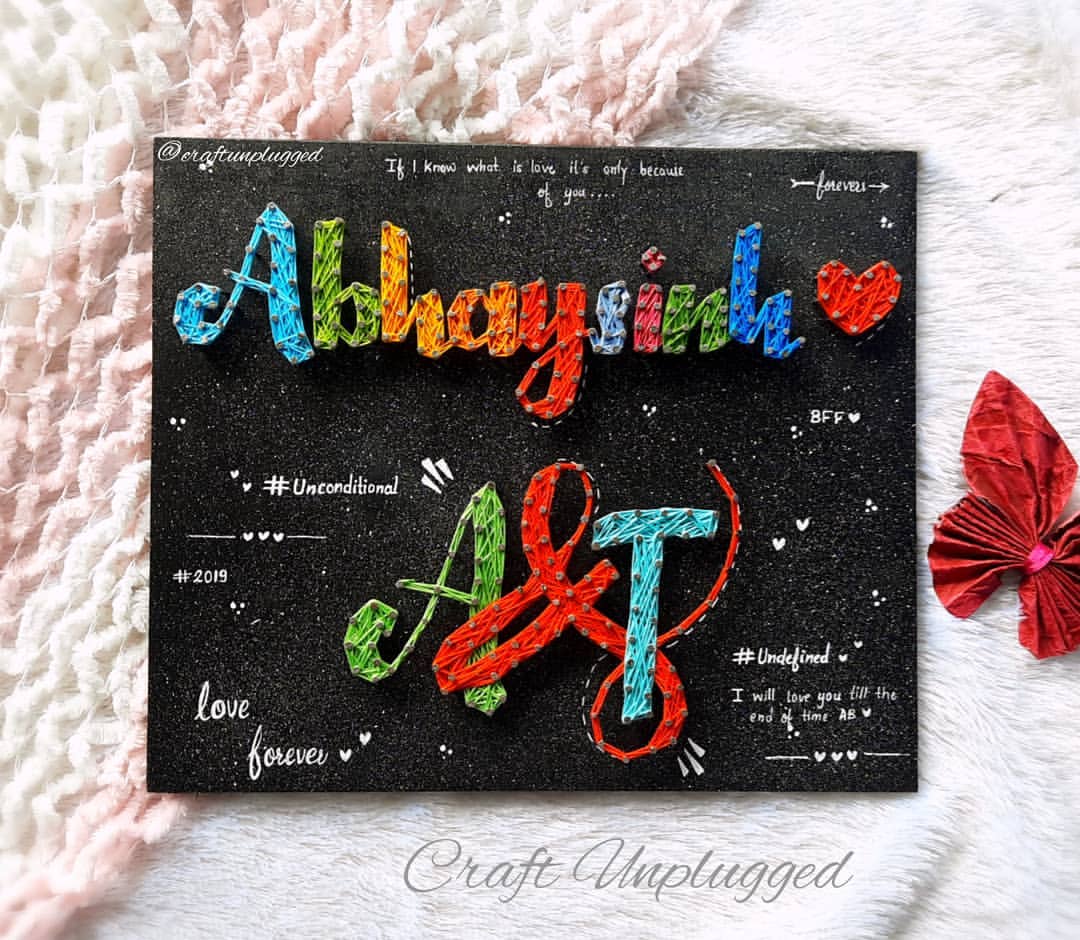 @craftunplugged
If I know what is love it's only because
of you....
forever
Abhaysinh
BFF
#Unconditional
#2019
A&T
#Undefined
I will love you till the
end of time AB
love
forever
Craft Unplugged